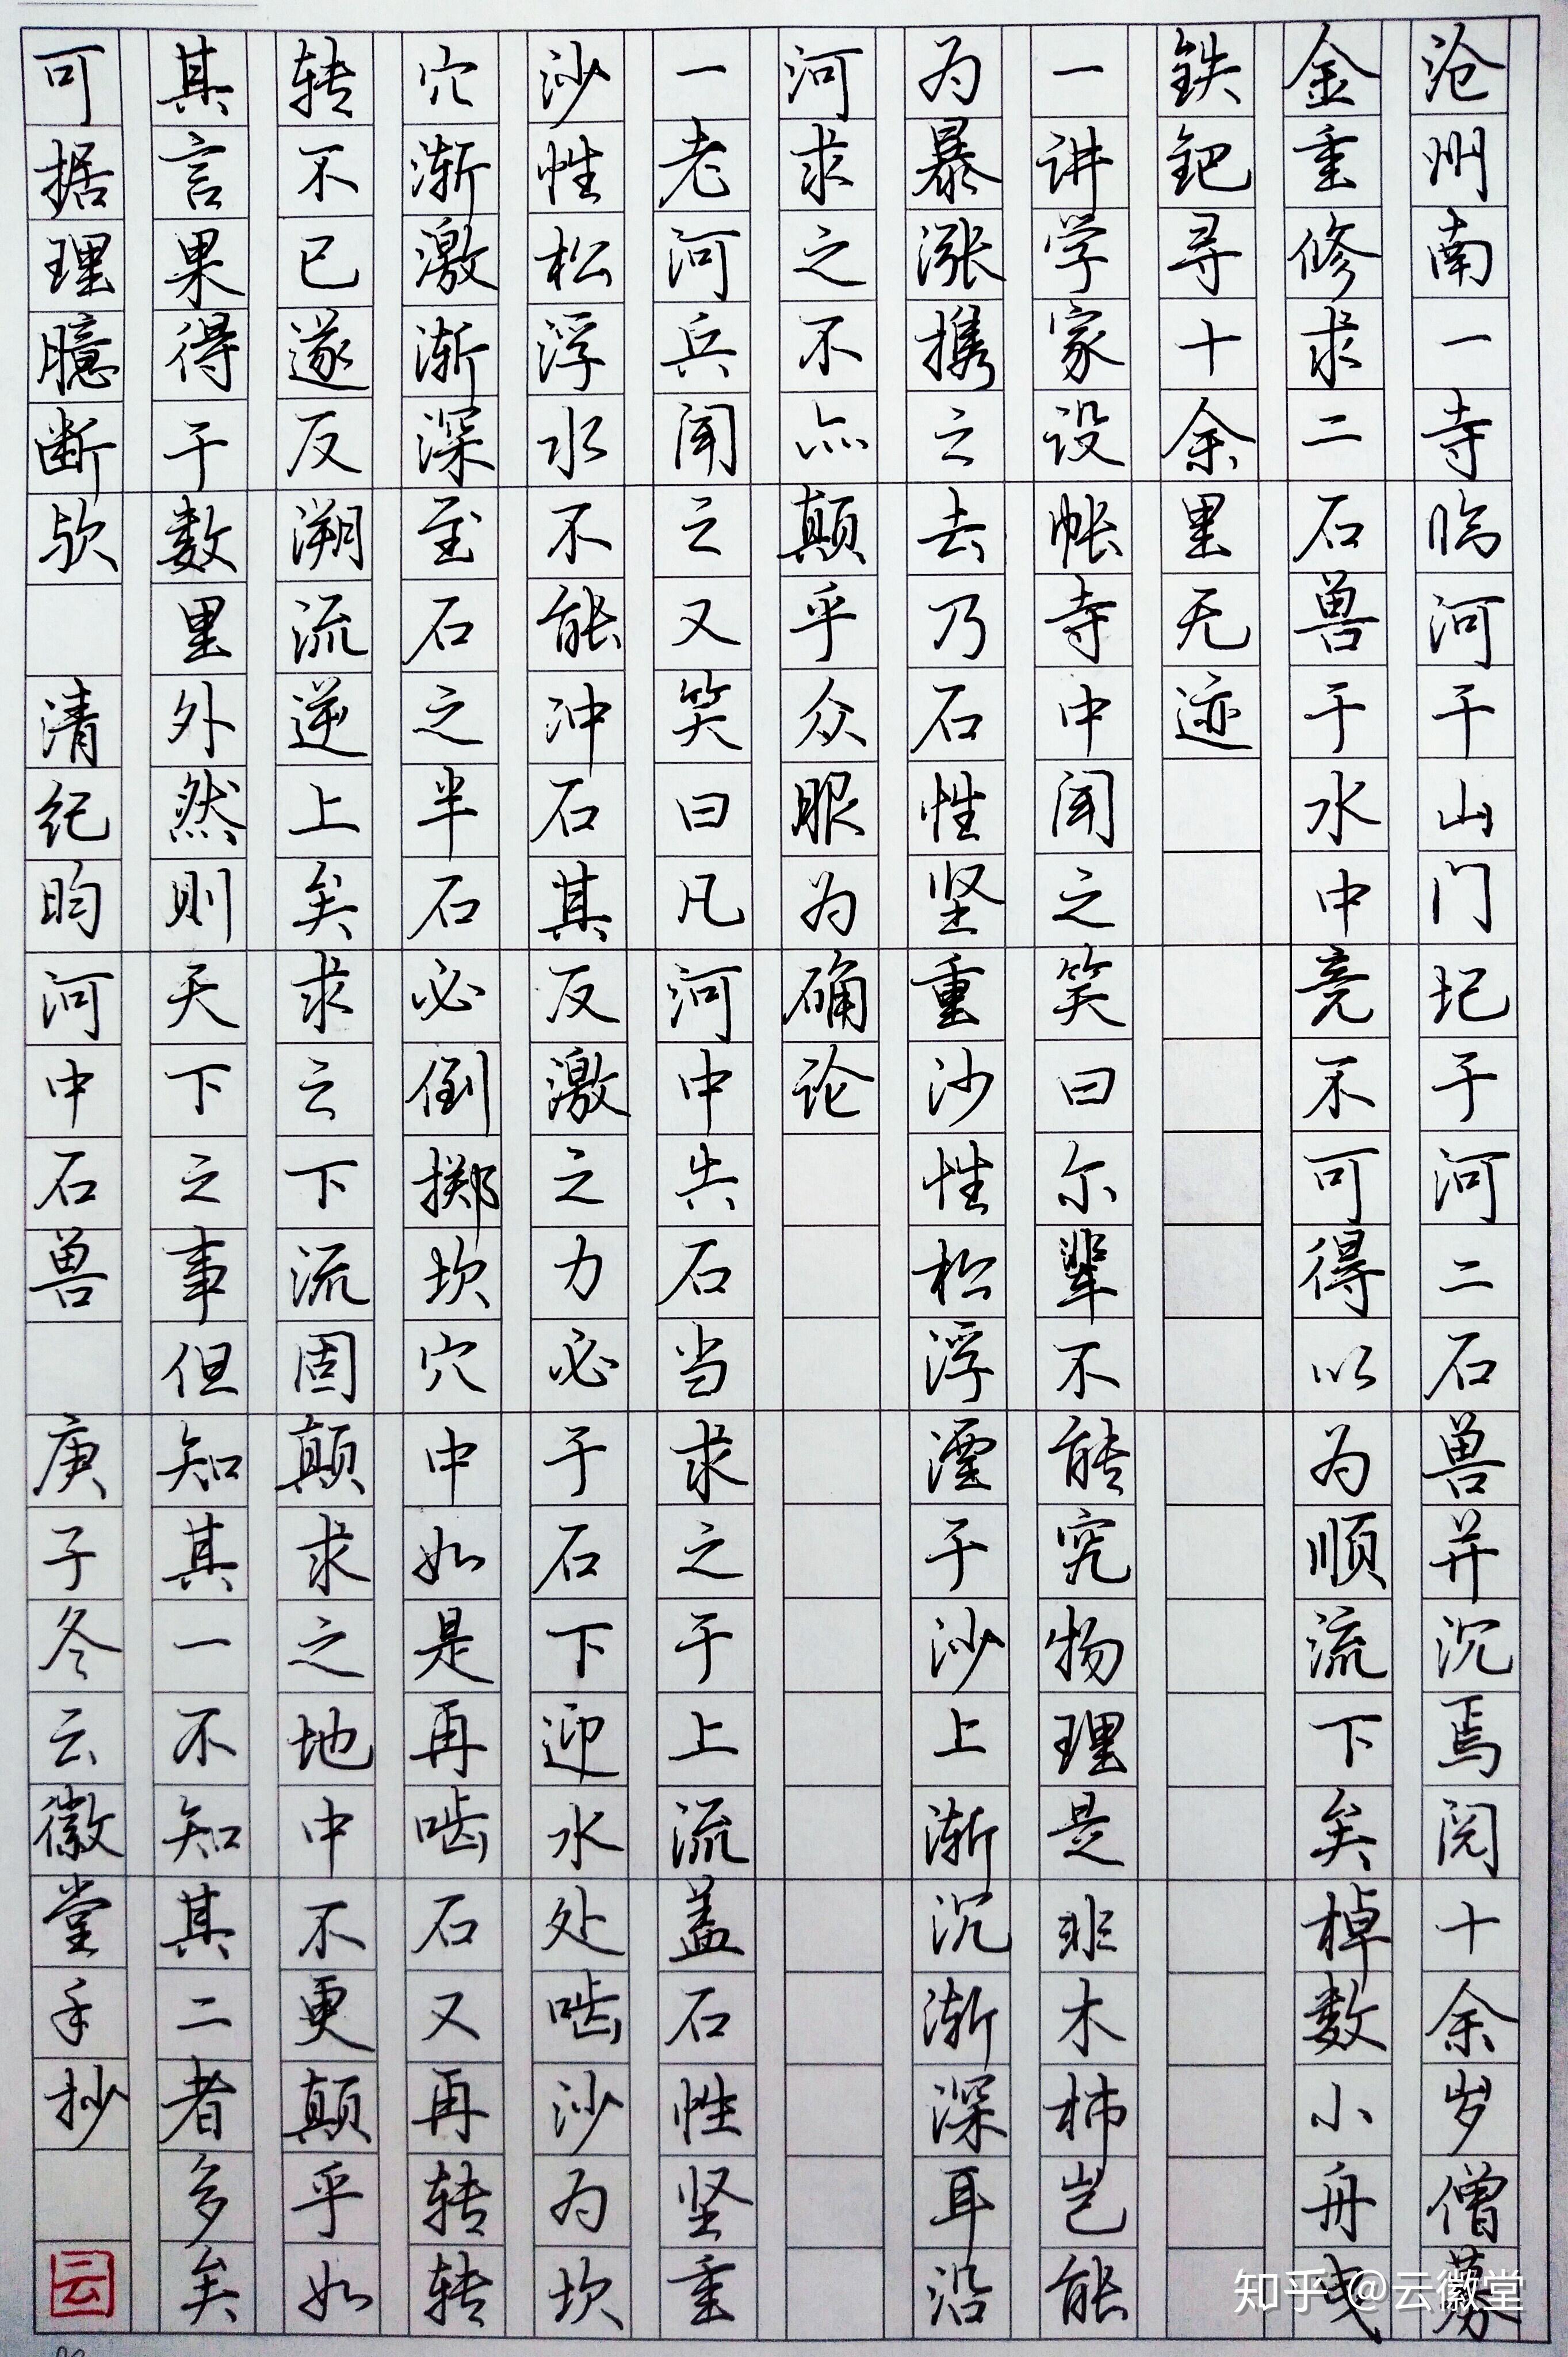 沧州南一寺临河干山门圮于河二石兽并沉焉阅十余岁僧募
金重修求二石兽于水中竟不可得以为顺流下矣棹数小舟曳
铁钯寻十余里无迹
一讲学家设帐寺中闻之笑曰尔辈不能究物理是非木杮岂能
为暴涨携之去乃石性坚重沙性松浮湮于沙上渐沉渐深耳沿
河求之不亦颠乎众服为确论
一老河兵闻之又笑曰凡河中失石当求之于上流盖石性坚重
沙性松浮水不能冲石其反激之力必于石下迎水处啮沙为坎
穴渐激渐深至石之半石必倒掷坎穴中如是再啮石又再转转
转不已遂反溯流逆上矣求之下流固颠求之地中不更颠乎如
其言果得于数里外然则天下之事但知其一不知其二者多矣
可据理臆断欤 清纪昀河中石兽 庚子冬云徽堂手抄
云
知乎 @云徽堂